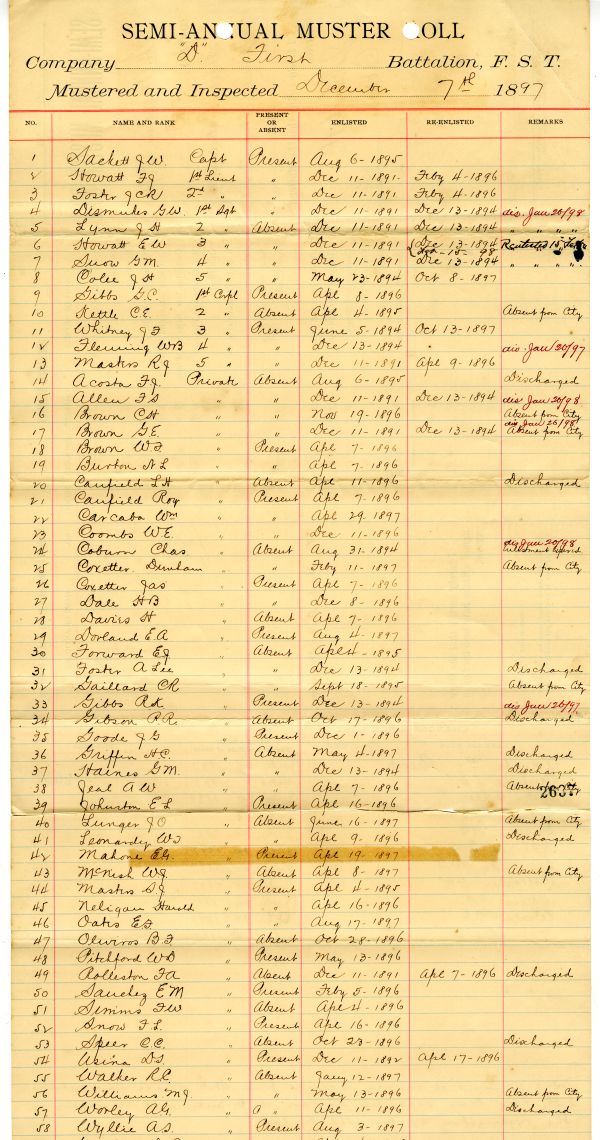 SEMI-ANNUAL MUSTER ROLL
Company "D" First Battalion, F. S. T.
Mustered and Inspected December 7th 1897
NO. NAME AND RANK PRESENT OR ABSENT ENLISTED RE-ENLISTED REMARKS
1 Sackett J W. Capt Present Aug 6-1895
2 Howatt F J 1st Lieut " Dec 11-1891- Feby 4-1896
3 Foster J C R 2nd " " Dec 11-1891 Feby 4-1896
4 Dismukes G W. 1st Sgt " Dec 11-1891 Dec 13-1894 dis. Jan 20/98
5 Lynn J H 2 " Absent Dec 11-1891 Dec 13-1894 " " "
6 Howatt E W 3 " " Dec 11-1891 Dec 13-1894
7 Snow G M. 4 " " Dec 11-1891 Dec 13-1894 " " "
8 Colee J H 5 " " May 23-1894 Oct 8-1897
9 Gibbs G. C. 1st Corpl Present Apl 8-1896
10 Kettle C. E. 2 " Absent Apl 4-1895 Absent from City
11 Whitney J F 3 " Present June 5-1894 Oct 13-1897
12 Fleming W B 4 " " Dec 13-1894 dis. Jan 20/97
13 Masters R J 5 " " Dec 11-1891 Apl 9-1896
14 Acosta F J. Private Absent Aug 6-1895 Discharged
15 Allen F S " " Dec 11-1891 Dec 13-1894 dis Jan 20/98
16 Brown C H " " Nov 19-1896 Absent from City
17 Brown G. E. " " Dec 11-1891 Dec 13-1894 dis Jan 20/98 Absent from City
18 Brown W F. " Present Apl 7-1896
19 Burton N L " " Apl 7-1896
20 Canfield L H " Absent Apl 11-1896 Discharged
21 Canfield Roy " Present Apl 7-1896
22 Carcaba Wm " " Apl 29-1897
23 Coombs W E. " " Dec 11-1896
24 Coburn Chas " Absent Aug 31-1894 dis Jan 20/98 Enlistment expired
25 Coxetter Dunham " " Feby 11-1897 Absent from City
26 Coxetter Jas " Present Apl 7-1896
27 Dale H B " " Dec 8-1896
28 Davies H " Absent Apl 7-1896
29 Dorland E. A " Present Aug 4-1897
30 Forward E J " Absent Apl 4-1895
31 Foster A Lee " " Dec 13-1894 Discharged
32 Gaillard C R " " Sept 18-1895 Absent from City
33 Gibbs R d. " Present Dec 13-1894 dis Jan 20/97
34 Gibson P. R. " Absent Oct 17-1896 Discharged
35 Goode J G " Present Dec 1-1896
36 Griffin H C. " Absent May 4-1897 Discharged
37 Haines G M. " " Dec 13-1894 Discharged
38 Jeal A W " " Apl 7-1896 Absent from City
2637
39 Johnston E L " Present Apl 16-1896
40 Lunger J O " Absent June 16-1897 Absent from City
41 Leonardy W J " " Apl 9-1896 Discharged
42 Mahone E G. " Present Apl 19-1897
43 McNish W J. " Absent Apl 8-1897 Absent from City
44 Masters S J " Present Apl 4-1895
45 Neligan Harold " " Apl 16-1896
46 Oates E F. " " Aug 17-1897
47 Oliveros B. F " Absent Oct 28-1896
48 Pitchford W D " Present May 13-1896
49 Rolleston F A " Absent Dec 11-1891 Apl 7-1896 Discharged
50 Sanchez E M " Present Feby 5-1896
51 Simms F W " Absent Apl 4-1896
52 Snow F L. " Present Apl 16-1896
53 Speer C. C. " Absent Oct 23-1896 Discharged
54 Usina D S. " Present Dec 11-1892 Apl 17-1896
55 Walker R. C. " Absent Jany 12-1897
56 Williams M J. " " May 13-1896 Absent from City
57 Worley A G. " a " Apl 11-1896 Discharged
58 Wyllie A S. " Present Aug 3-1897